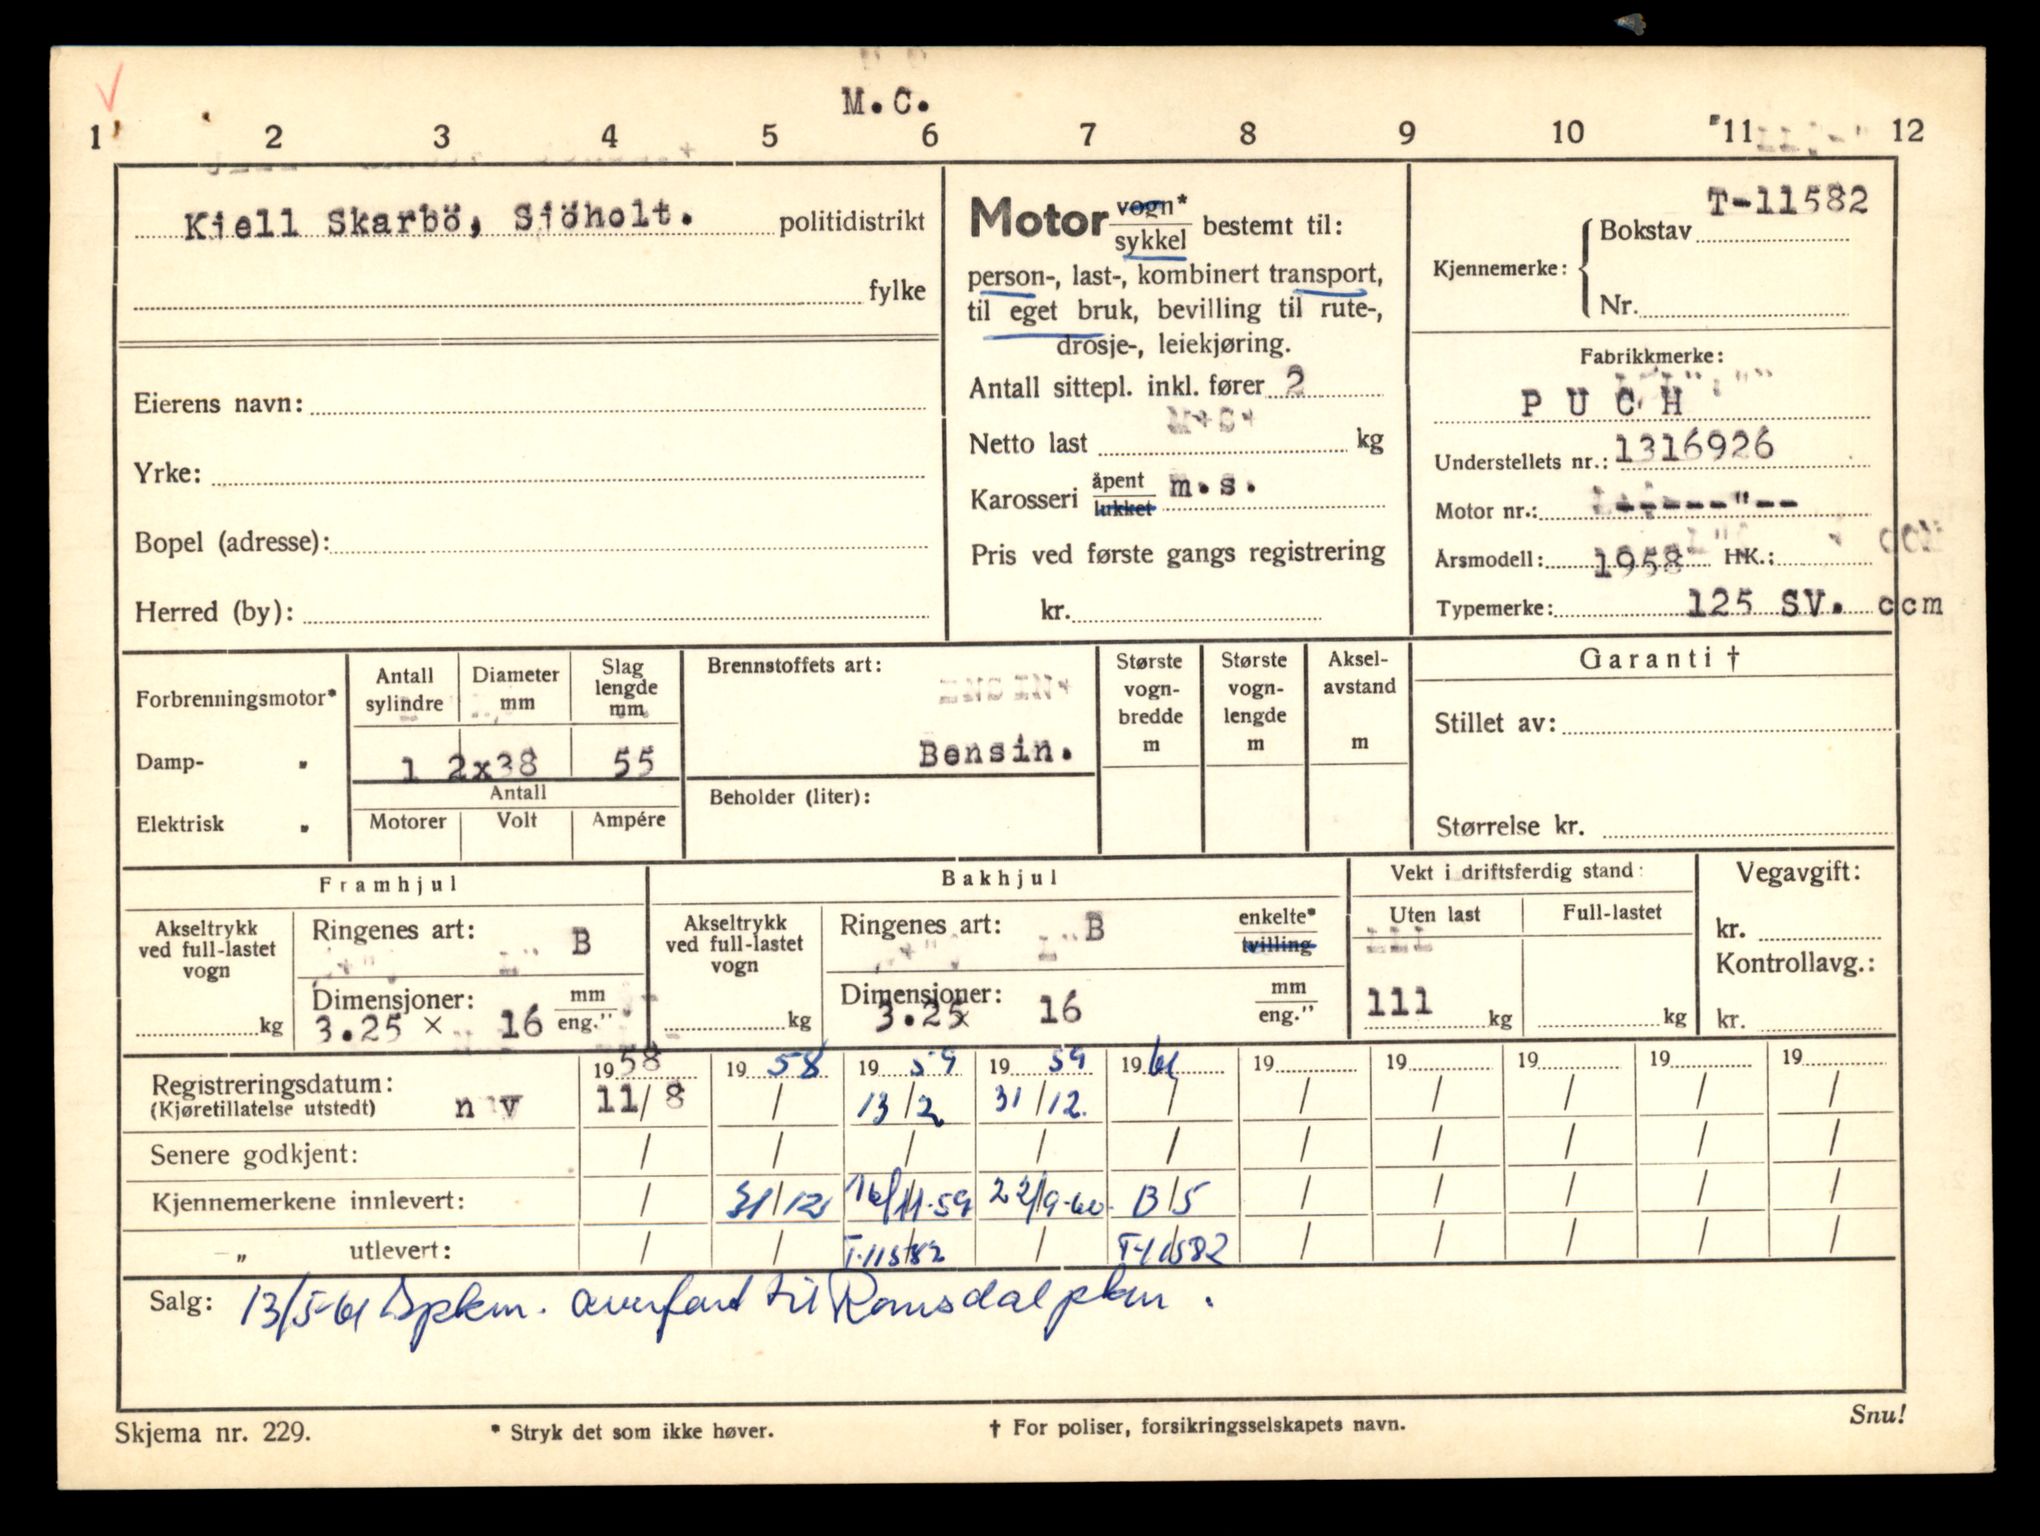 M.C.
1 2 3 4 5 6 7 8 9 10 11 12
Kjell Skarbö, Sjöholt. politidistrikt
fylke
Eierens navn:
Yrke:
Bopel (adresse):
Herred (by):
Motor vogn* sykkel bestemt til:
person-, last-, kombinert transport,
til eget bruk, bevilling til rute-,
drosje-, leiekjøring.
Antall sittepl. inkl. fører 2
Netto last kg
Karosseri åpent lukket m.s.
Pris ved første gangs registrering
kr.
T-11582
Kjennemerke: Bokstav
Nr.
Fabrikkmerke:
PUCH
Understellets nr.: 1316926
Motor nr.: ------"--
Årsmodell: 1958 HK.:
Typemerke: 125 SV. ccm
Forbrenningsmotor*
Damp- "
Elektrisk "
Antall sylindre
Diameter mm
Slag lengde mm
1 2x38 55
Antall
Motorer Volt Ampére
Brennstoffets art:
Bensin.
Beholder (liter):
Største vogn-bredde m
Største vogn-lengde m
Aksel-avstand m
Garanti †
Stillet av:
Størrelse kr.
Framhjul
Akseltrykk ved full-lastet vogn
kg
Ringenes art: B
Dimensjoner: mm eng."
3.25 x 16
Bakhjul
Akseltrykk ved full-lastet vogn
kg
Ringenes art: B enkelte* tvilling
Dimensjoner: mm eng."
3.25x 16
Vekt i driftsferdig stand:
Uten last Full-lastet
111 kg kg
Vegavgift:
kr.
Kontrollavg.:
kr.
1958 1958 1959 1959 1961 19 19 19 19 19
Registreringsdatum:
(Kjøretillatelse utstedt) n v 11/8 / 13/2 31/12. / / / / / /
Senere godkjent: / / / / / / / / / /
Kjennemerkene innlevert: / 31/12 16/11-59 22/9-60. 13/5 / / / / /
—„— utlevert: / / T-11582 / T-11582 / / / / /
Salg: 13/5-61 Spkm. overført til Romsdal pkm.
Skjema nr. 229.
* Stryk det som ikke høver.
† For poliser, forsikringsselskapets navn.
Snu!